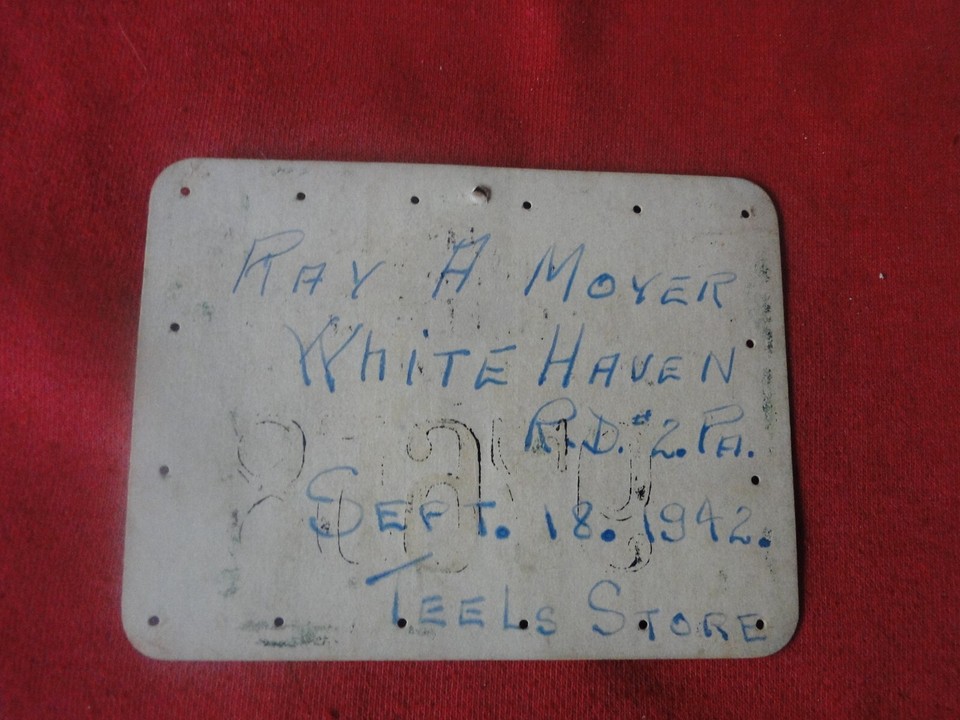 RAY A MOYER
WHITE HAVEN
R.D. #2. PA.
SEPT. 18. 1942.
TEELS STORE